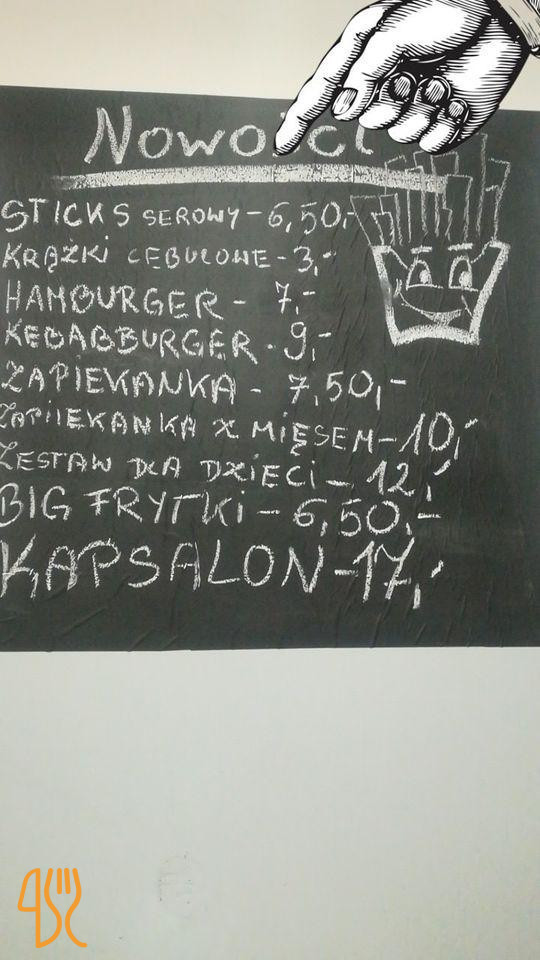 Nowości
STICKS SEROWY - 6,50,-
KRĄŻKI CEBULOWE - 3,-
HAMBURGER - 7,-
KEBABBURGER - 9,-
ZAPIEKANKA - 7,50,-
ZAPIEKANKA Z MIĘSEM - 10,-
ZESTAW DLA DZIECI - 12,-
BIG FRYTKI - 6,50,-
KAPSALON - 17,-